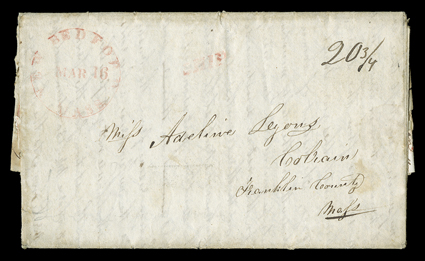 NEW BEDFORD
MAR 16
MASS
20 3/4
Miss Adeline Lyons
Colrain
Franklin County
Mass